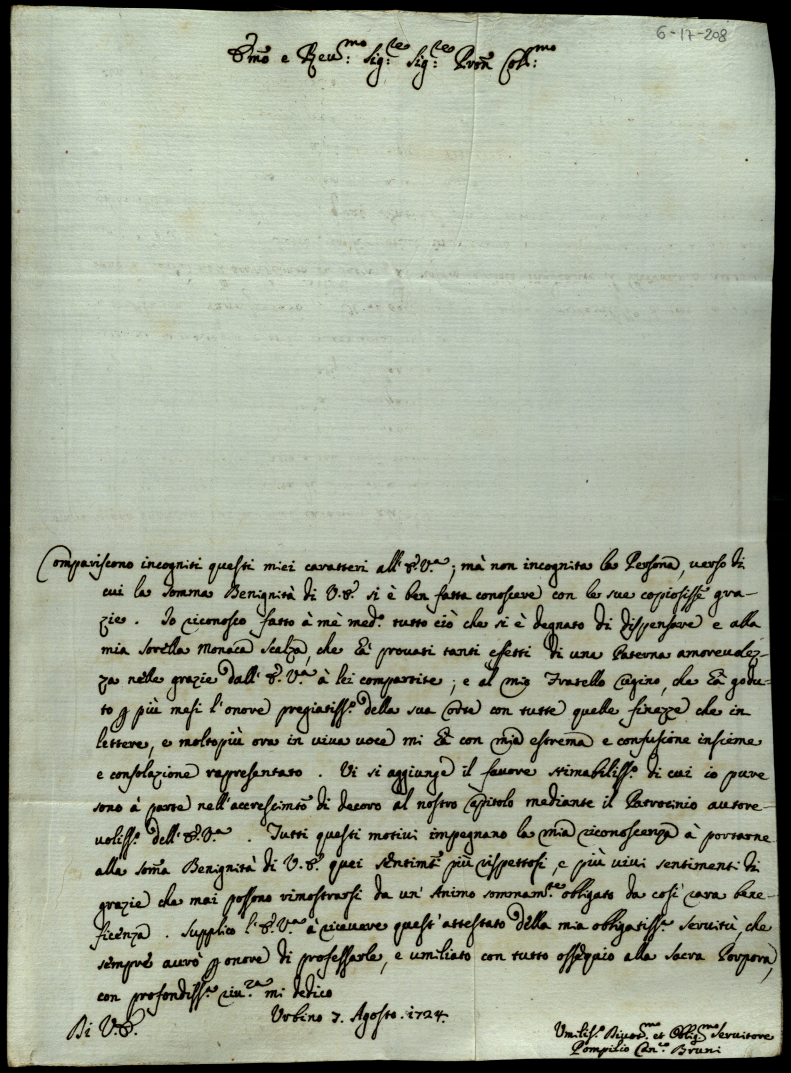 6-17-208
Em̃o e Reu:mo Sig:re Sig:re Pron̄ Coll:mo
Compariscono incogniti questi miei caratteri all' E. V.a; mà non incognita la Persona, uerso di
cui la somma Benignità di V. E. si è ben fatta conoscere con le sue copiosiss.e gra-
zie. Io riconosco fatto à mè med.o tutto ciò che si è degnato di dispensare e alla
mia Sorella Monaca Scalza, che hà prouati tanti effetti di una Paterna amoreuolez-
za nelle grazie dall' E. V.a à lei compartite; e al mio Fratello, che hà godu-
to p più mesi l'onore pregiatiss.o della sua Corte con tutte quelle finezze che in
lettere, e molto più ora in uiua uoce mi hà con mia estrema e confusione insieme
e consolazione rapresentato. Vi si aggiunge il fauore stimabiliss.o di cui io pure
sono à parte nell'accrescim.to di decoro al nostro Capitolo mediante il Patrocinio autore-
uoliss.o dell' E. V.a. Tutti questi motiui impegnano la mia riconoscenza à portarne
alla som̄a Benignità di V. E. quei sentim.ti più rispettosi, e più uiui sentimenti di
grazie che mai possono rimostrarsi da un' Animo sommam.te obligato da così rara bene-
ficenza. Supplico l' E. V.a à riceuere quest' attestato della mia obligatiss.a seruitù, che
sempre aurò p onore di professarle, e umiliato con tutto ossequio alla Sacra Porpora,
con profondiss.a riu.za mi dedico
Di V. E. Urbino 7. Agosto. 1724.
Umiliss.o Diuot.mo et Oblig.mo Seruitore
Pompilio Can.co Bruni